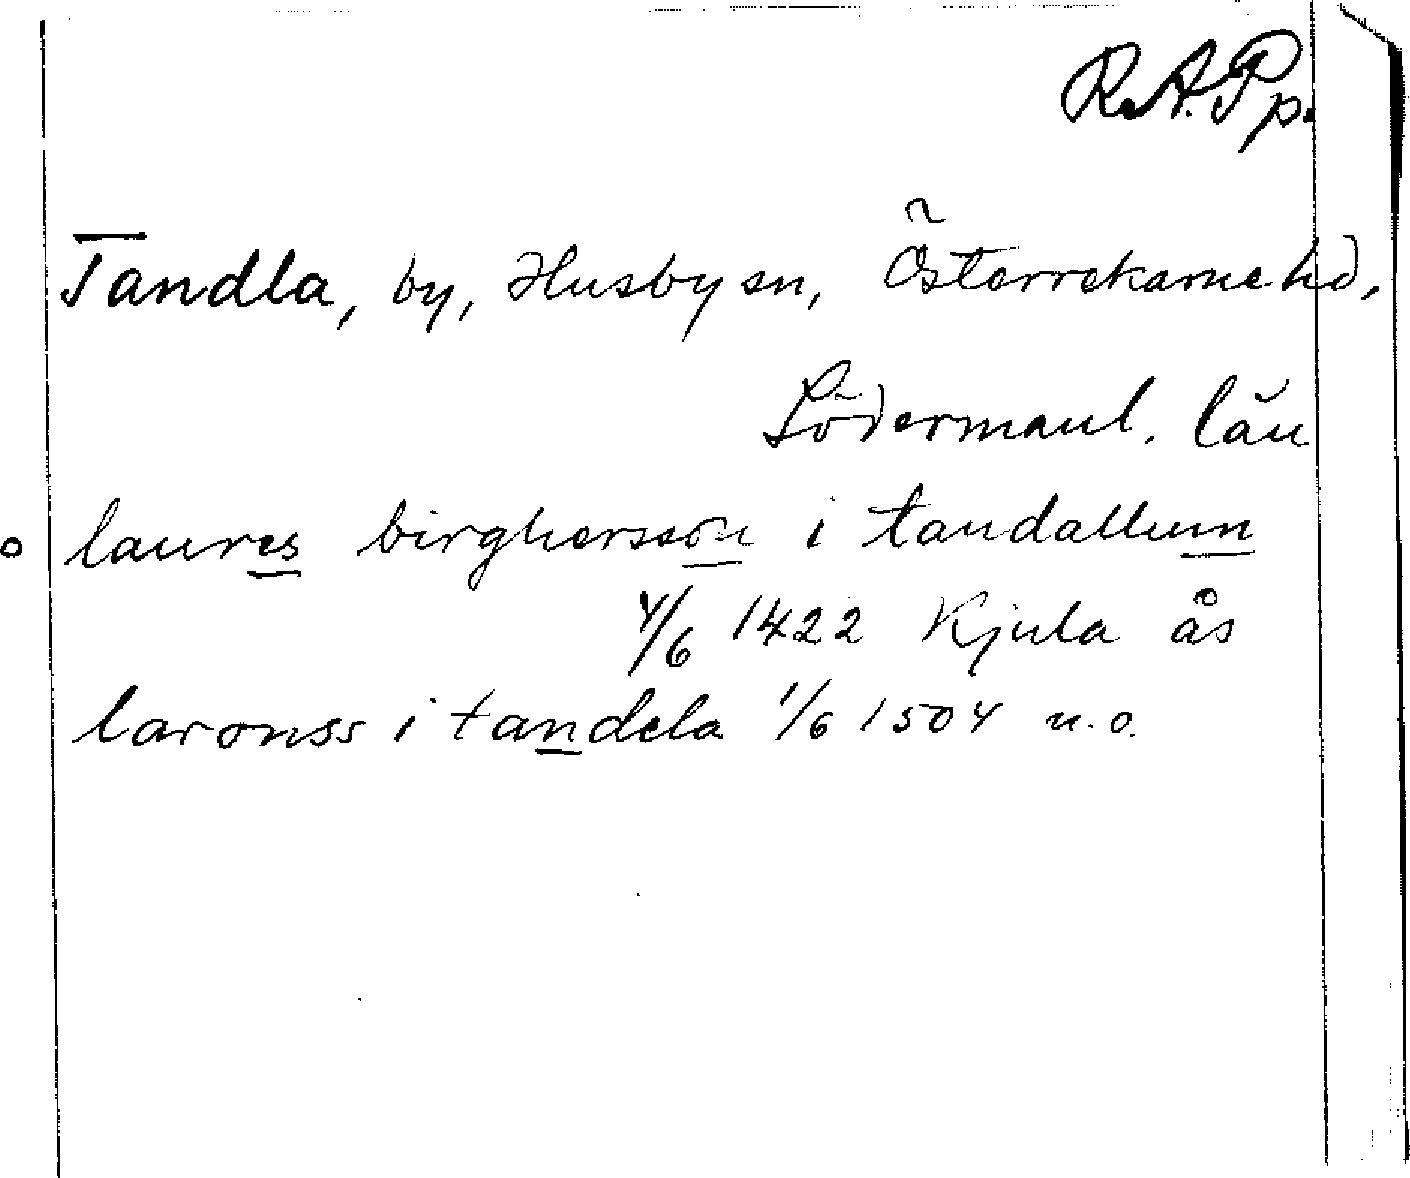 R.A.Pp.
Tandla, by, Husby sn, Österrekarne hd,
Södermanl. län
laures birghersson i tandallum
4/6 1422 Kjula ås
laronss i tandela 1/6 1504 u.o.